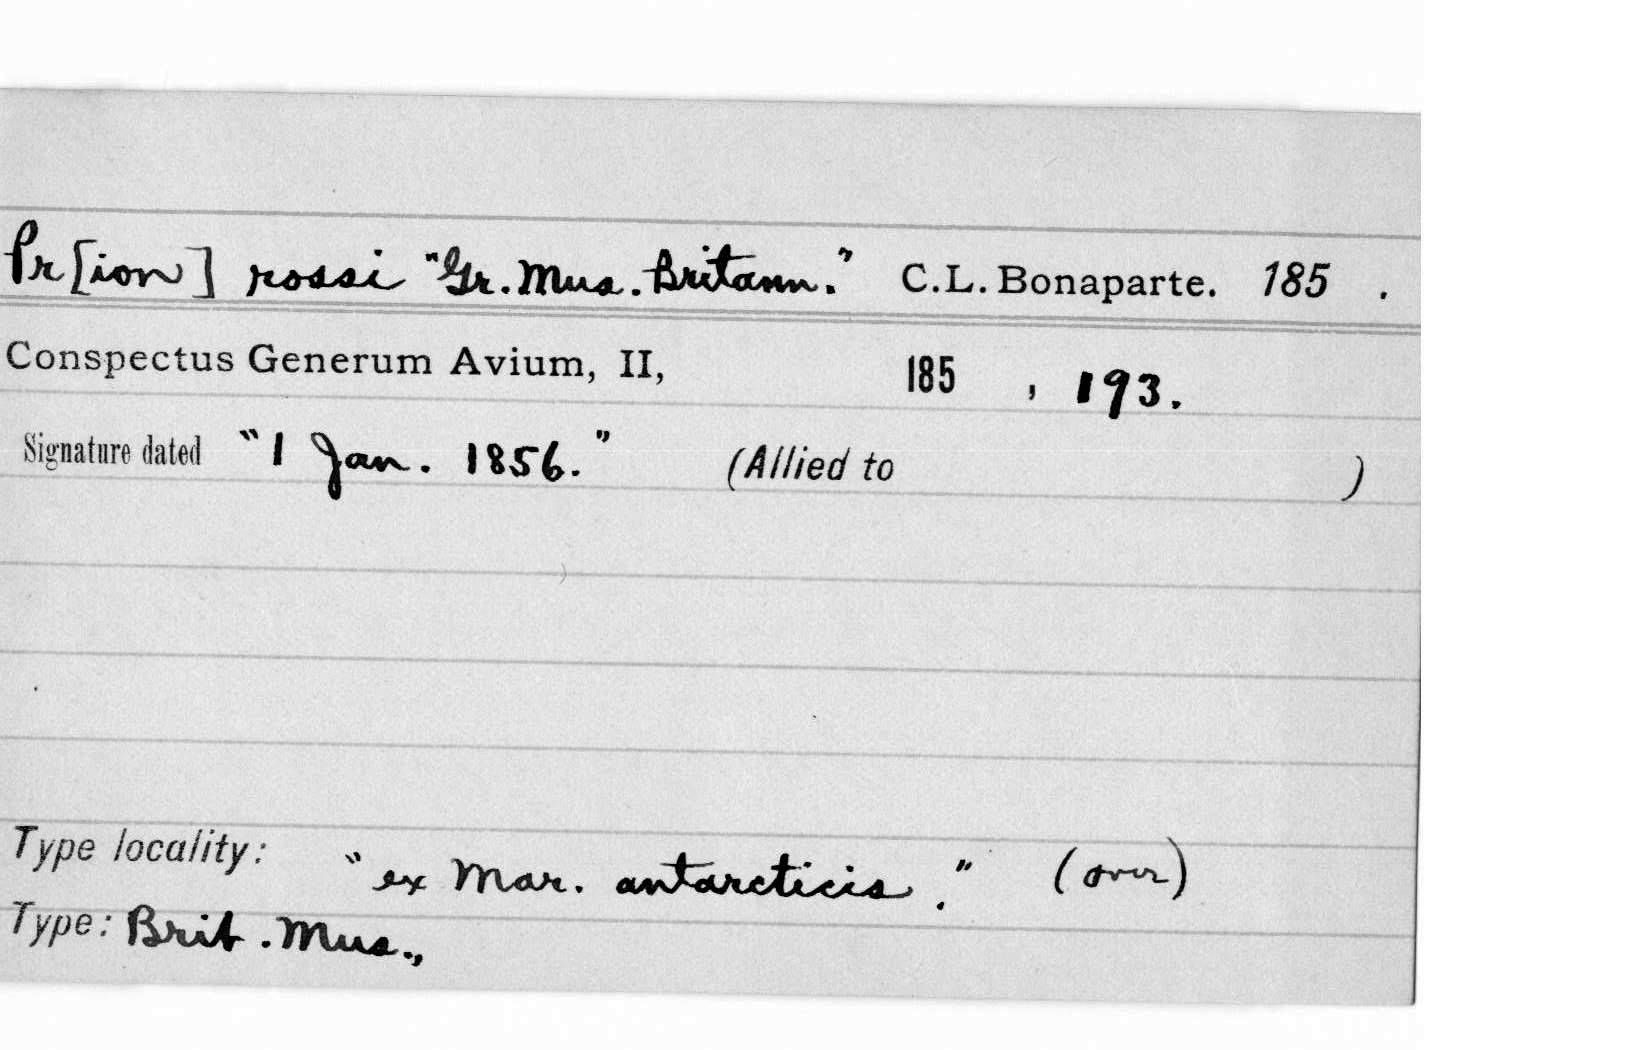 Pr[ion] rossi "Gr. Mus. Britann." C.L. Bonaparte. 185 .
Conspectus Generum Avium, II, 185 , 193.
Signature dated "1 Jan. 1856." (Allied to )
Type locality: "ex Mar. antarcticis." (over)
Type: Brit. Mus.,